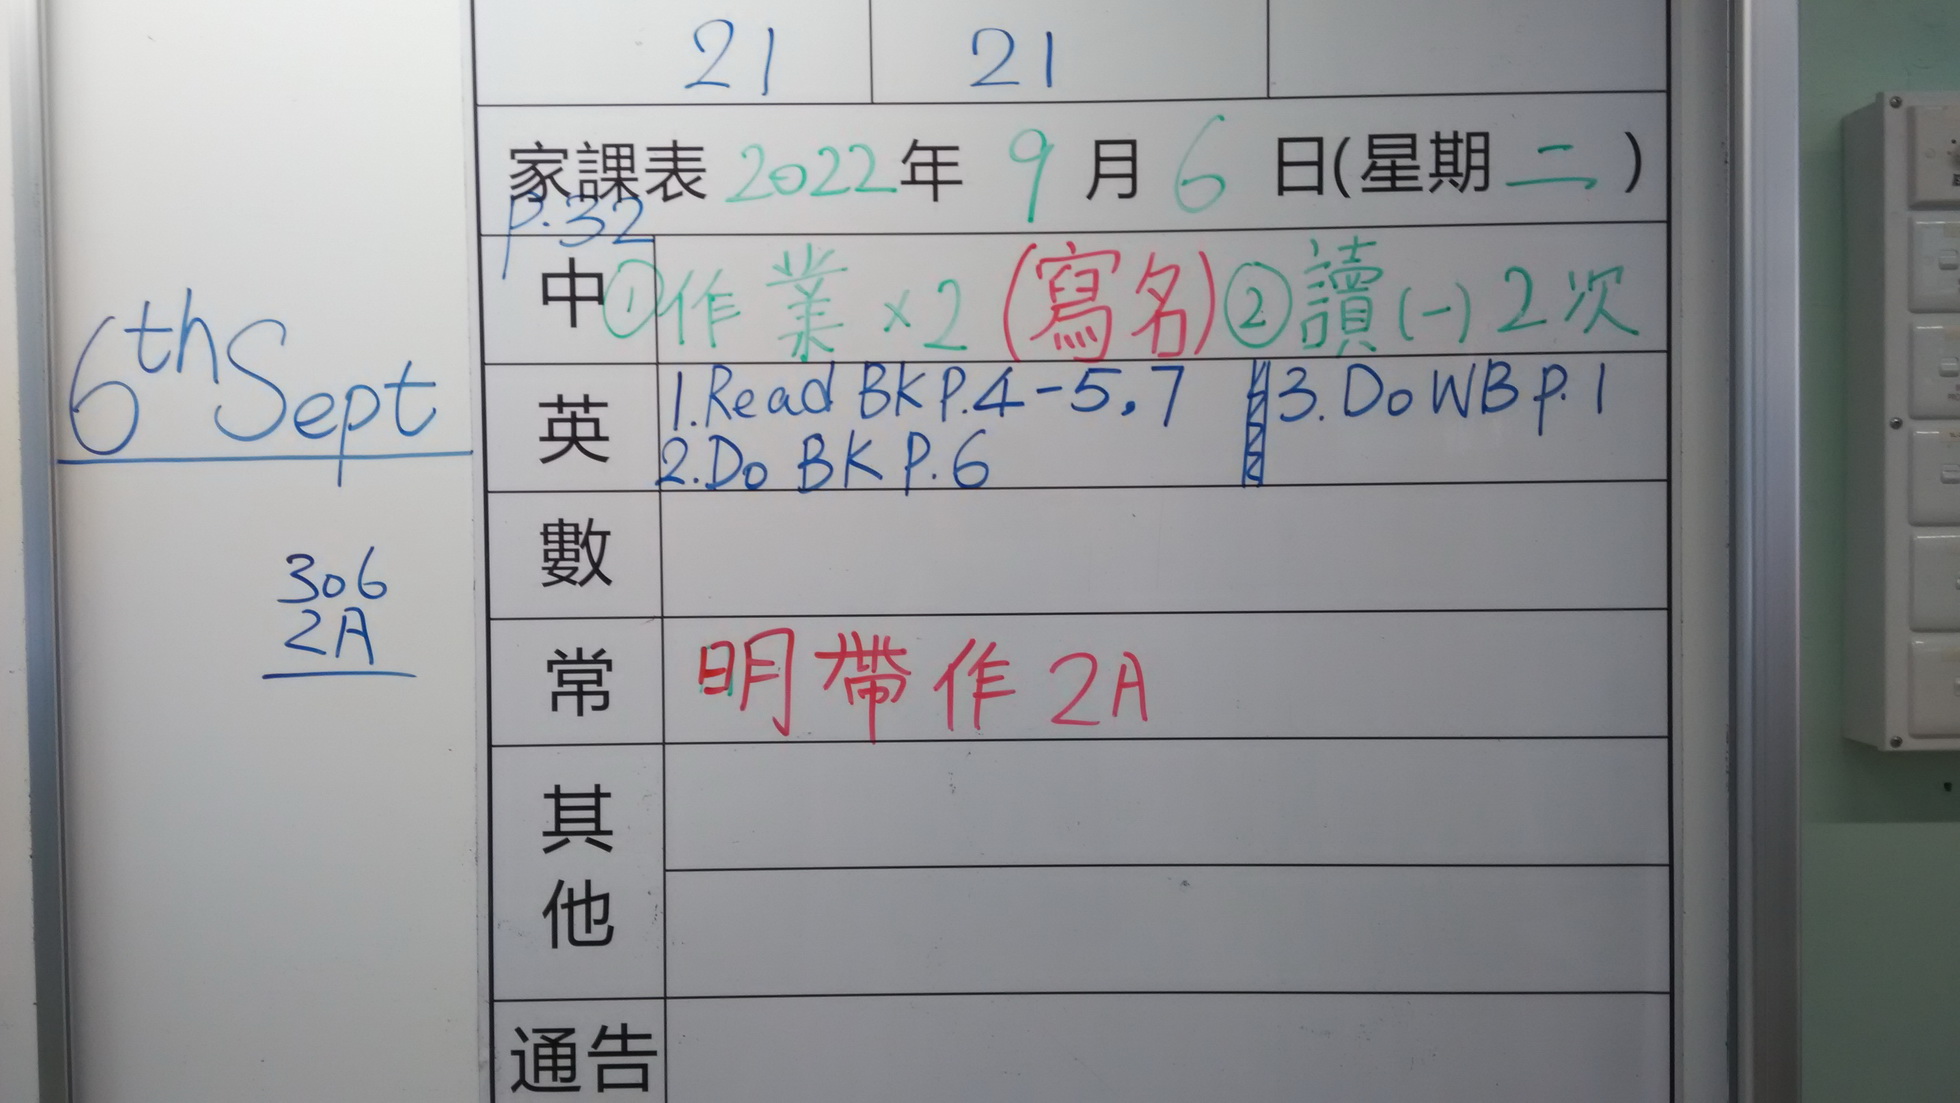 21 21
家課表 2022 年 9 月 6 日(星期 二 )
P.32
中 ①作業×2 (寫名) ②讀(一) 2次
英 1.Read BK P.4-5,7 3. Do WB p.1
2.Do BK P.6
數
常 明帶作 2A
其他
通告
6th Sept
306
2A